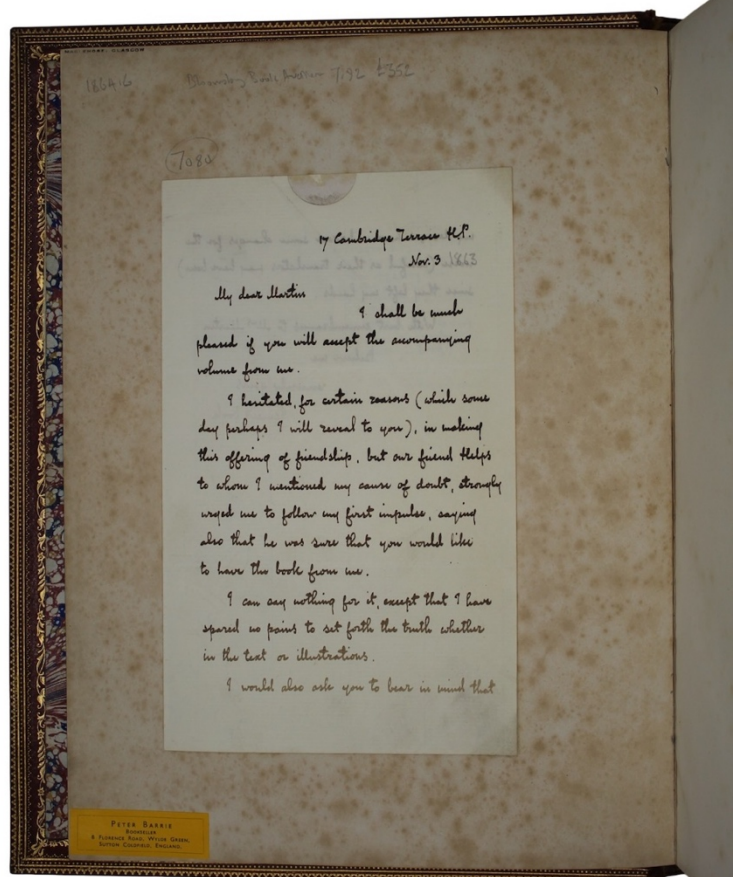 1864.6
7/92 £352
7080
17 Cambridge Terrace H.P.
Nov. 3 1863
My dear Martin
I shall be much
pleased if you will accept the accompanying
volume from me.
I hesitated, for certain reasons (which some
day perhaps I will reveal to you), in making
this offering of friendship, but our friend Helps
to whom I mentioned my cause of doubt, strongly
urged me to follow my first impulse, saying
also that he was sure that you would like
to have the book from me.
I can say nothing for it, except that I have
spared no pains to set forth the truth whether
in the text or illustrations.
I would also ask you to bear in mind that
PETER BARRIE
BOOKSELLER
FLORENCE ROAD, WYLDE GREEN,
SUTTON COLDFIELD, ENGLAND.